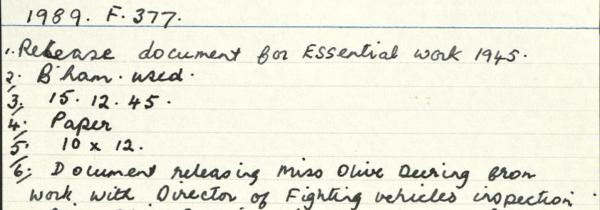 1989. F. 377.
1. Release document for Essential work 1945.
2. B'ham. used.
3. 15. 12. 45.
4. Paper
5. 10 x 12.
6. Document releasing Miss Olive Deering from
work with Director of Fighting vehicles inspection